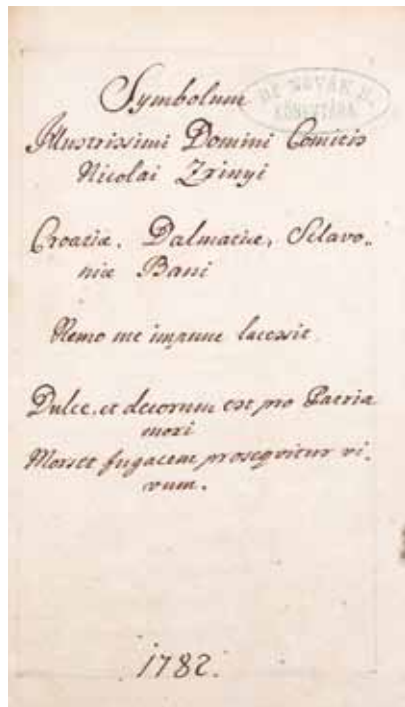 Symbolum
DE NOVÁK H.
KÖNYVTÁRA
Illustrissimi Domini Comitis
Nicolai Zrinyi
Croatiæ, Dalmatiæ, Sclavo„
niæ Bani
Nemo me impune lacessit.
Dulce et decorum est pro Patria
mori
Mors et fugacem proseqvitur vi„
rum.
1782.